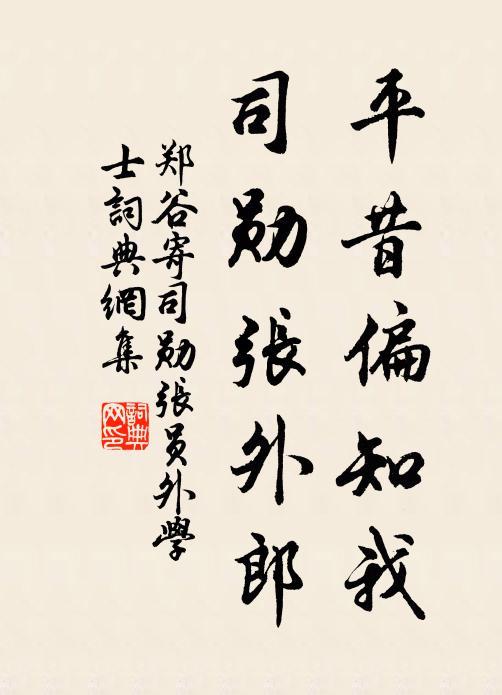 平昔偏知我
司勋張外郎
郑谷寄司勋張员外學
士詞典網集
詞典
网印